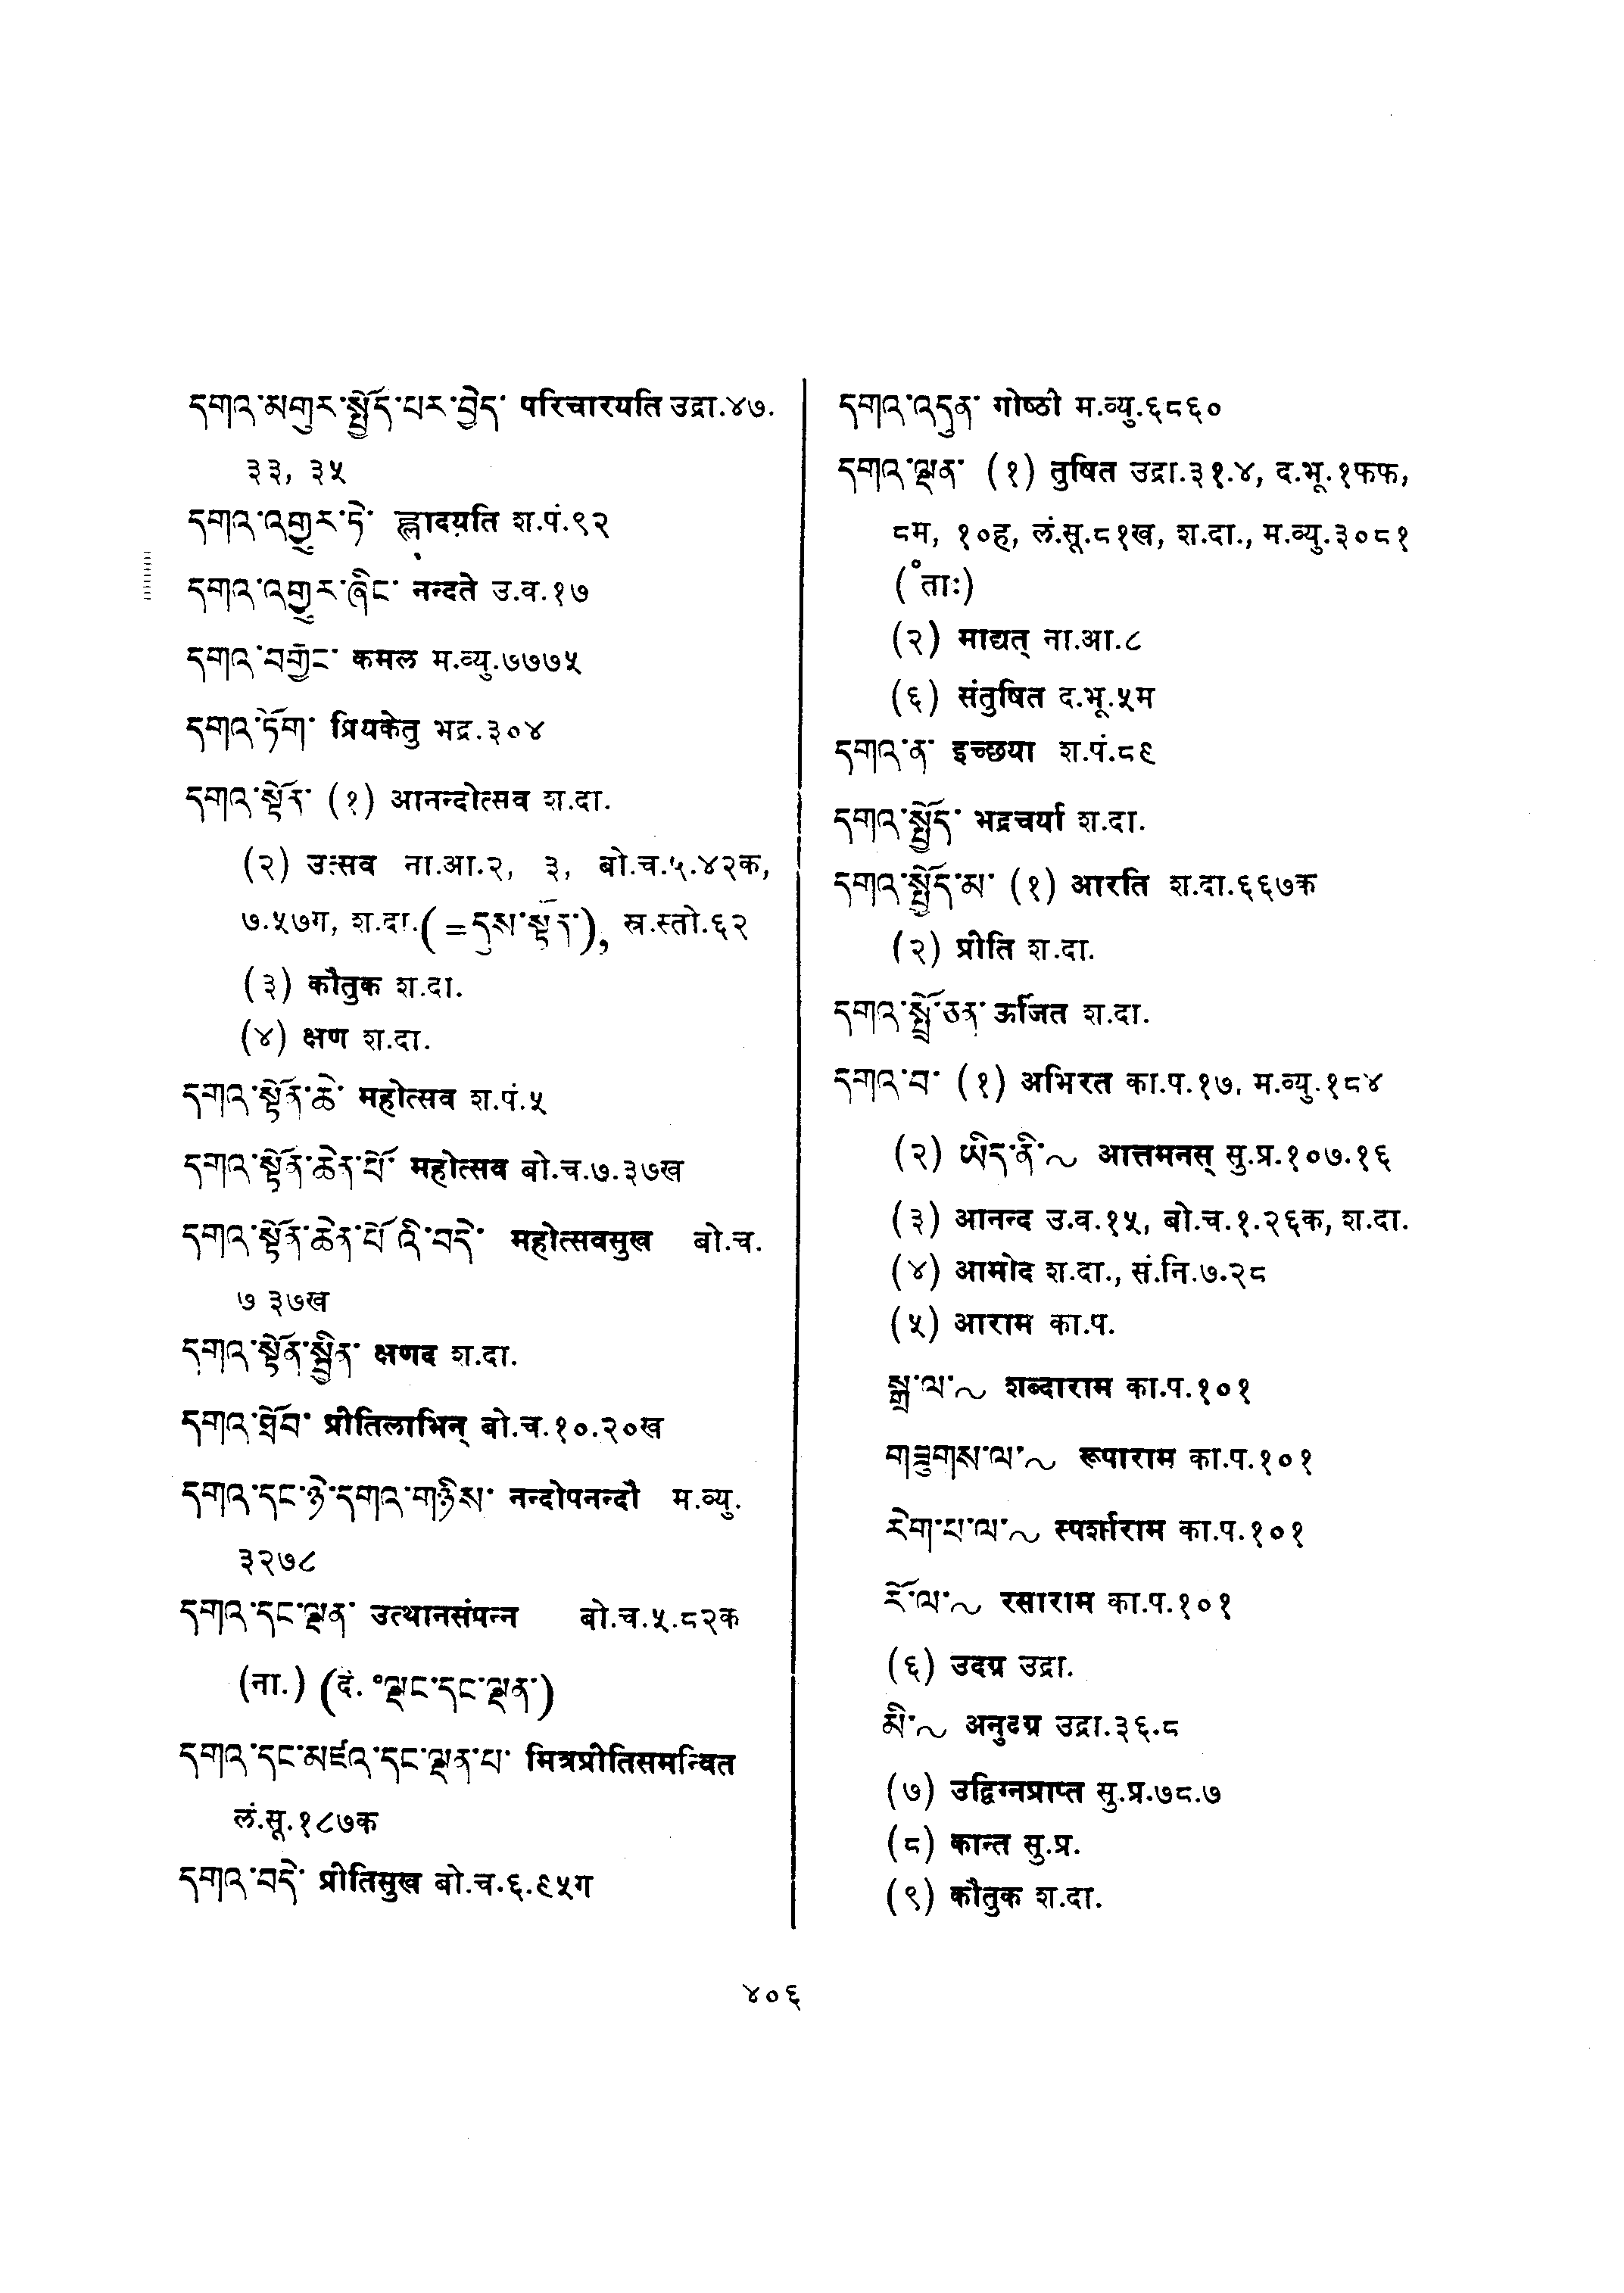 དགའ་མགུར་སྤྱོད་པར་བྱེད་ परिचारयति उद्रा.४७.
३३, ३५
དགའ་འགྱུར་ཏེ་ ह्लादयति श.पं.९२
དགའ་འགྱུར་ཞིང་ नन्दते उ.व.१७
དགའ་བགྱོང་ कमल म.व्यु.७७७५
དགའ་ཏོག་ प्रियकेतु भद्र.३०४
དགའ་སྟོན་ (१) आनन्दोत्सव श.दा.
(२) उत्सव ना.आ.२, ३, बो.च.५.४२क,
७.५७ग, श.दा.(=དུས་སྟོན་), स्र.स्तो.६२
(३) कौतुक श.दा.
(४) क्षण श.दा.
དགའ་སྟོན་ཆེ་ महोत्सव श.पं.५
དགའ་སྟོན་ཆེན་པོ་ महोत्सव बो.च.७.३७ख
དགའ་སྟོན་ཆེན་པོ་འི་བདེ་ महोत्सवसुख बो.च.
७ ३७ख
དགའ་སྟོན་སྦྱིན་ क्षणद श.दा.
དགའ་ཐོབ་ प्रीतिलाभिन् बो.च.१०.२०ख
དགའ་དང་ཉེ་དགའ་གཉིས་ नन्दोपनन्दौ म.व्यु.
३२७८
དགའ་དང་ལྡན་ उत्थानसंपन्न बो.च.५.८२क
(ना.) (दं. °ལྡང་དང་ལྡན་)
དགའ་དང་མཛའ་དང་ལྡན་པ་ मित्रप्रीतिसमन्वित
लं.सू.१८७क
དགའ་བདེ་ प्रीतिसुख बो.च.६.९५ग
དགའ་འདུན་ गोष्ठी म.व्यु.६८६०
དགའ་ལྡན་ (१) तुषित उद्रा.३१.४, द.भू.१फफ,
८म, १०ह, लं.सू.८१ख, श.दा., म.व्यु.३०८१
(°ताः)
(२) माद्यत् ना.आ.८
(६) संतुषित द.भू.५म
དགའ་ན་ इच्छया श.पं.८९
དགའ་སྤྱོད་ भद्रचर्या श.दा.
དགའ་སྤྱོད་མ་ (१) आरति श.दा.६६७क
(२) प्रीति श.दा.
དགའ་སྤྲོ་ཅན་ ऊर्जित श.दा.
དགའ་བ་ (१) अभिरत का.प.१७. म.व्यु.१८४
(२) ཡིད་ནི་~ आत्तमनस् सु.प्र.१०७.१६
(३) आनन्द उ.व.१५, बो.च.१.२६क, श.दा.
(४) आमोद श.दा., सं.नि.७.२८
(५) आराम का.प.
སྒྲ་ལ་~ शब्दाराम का.प.१०१
གཟུགས་ལ་~ रूपाराम का.प.१०१
རེག་པ་ལ་~ स्पर्शाराम का.प.१०१
རོ་ལ་~ रसाराम का.प.१०१
(६) उदग्र उद्रा.
མི་~ अनुदग्र उद्रा.३६.८
(७) उद्विग्नप्राप्त सु.प्र.७८.७
(८) कान्त सु.प्र.
(९) कौतुक श.दा.
४०६